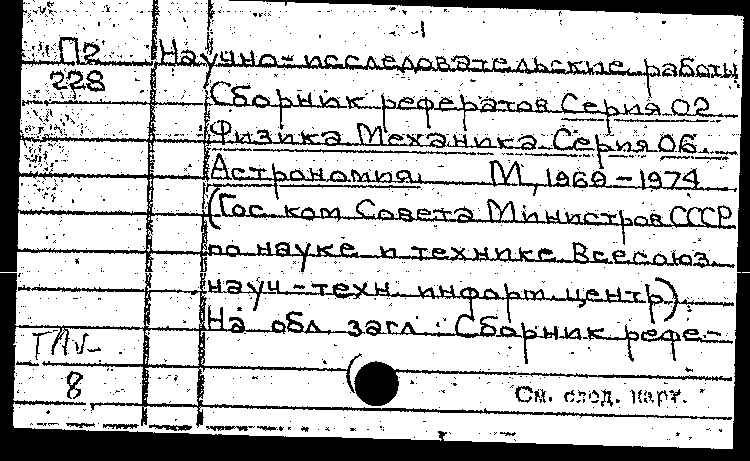 1
П2 Научно-исследовательские работы
228
Сборник рефератов Серия 02
Физика. Механика. Серия 06.
Астрономия. М, 1969-1974
(Гос. ком Совета Министров СССР
по науке и технике Всесоюз.
науч-техн. информ. центр).
На обл. загл.: Сборник рефе-
8
См. след. карт.